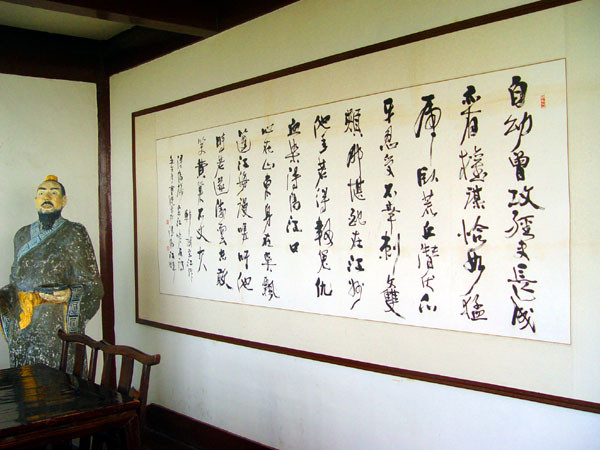 自幼曾攻經史長成
亦有權謀恰如猛
虎臥荒丘潛伏爪
牙忍受不幸刺文雙
頰那堪配在江州
他年若得報冤仇
血染潯陽江口
心在山東身在吳飄
蓬江海漫嗟吁他
時若遂凌雲志敢
笑黃巢不丈夫
宋江作